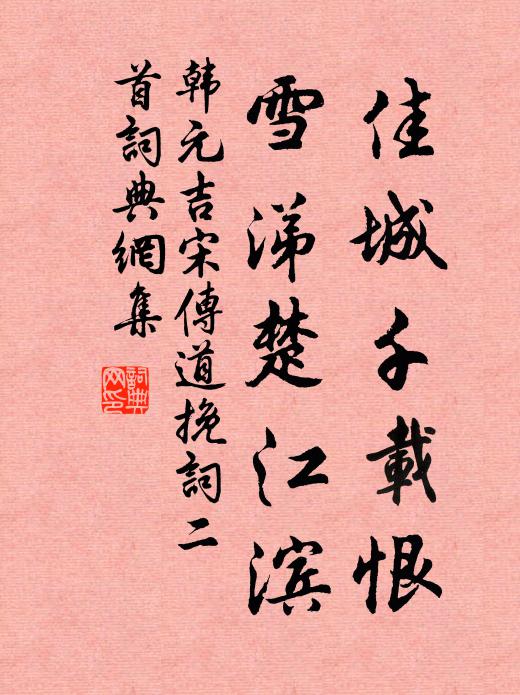 佳城千載恨
雪涕楚江滨
韩元吉宋傳道挽詞二
首詞典網集
詞典
网印